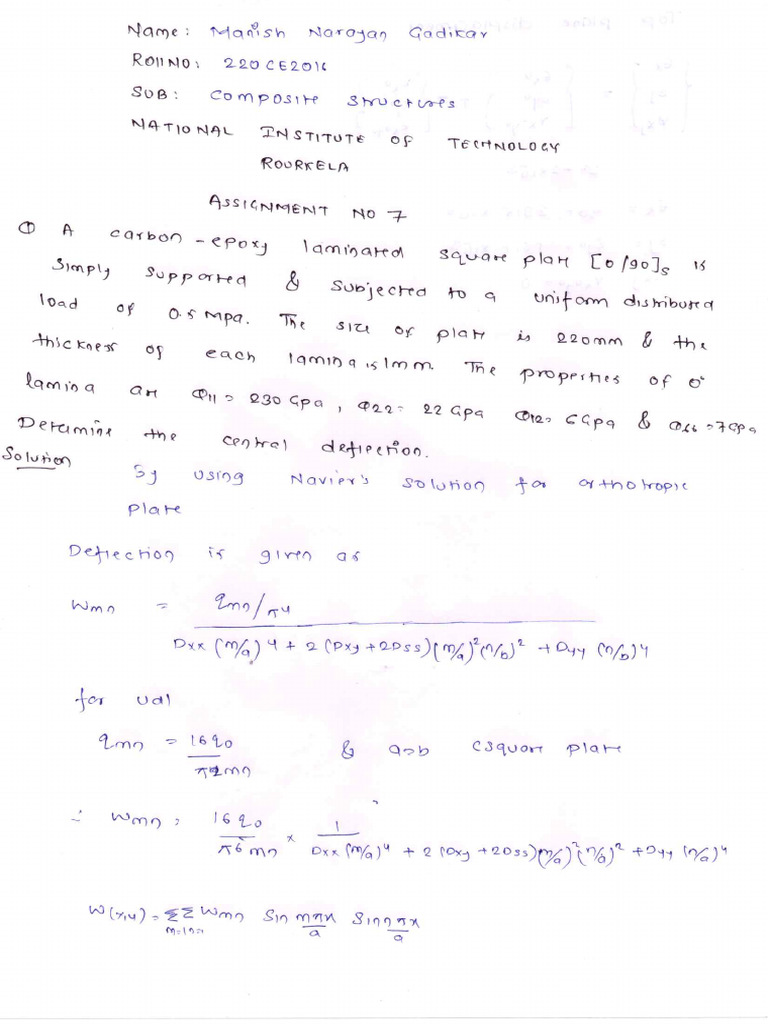 Name: Manish Narayan Gadikar
Roll NO: 220CE2016
SUB: Composite structures
NATIONAL INSTITUTE OF TECHNOLOGY
ROURKELA
ASSIGNMENT NO 7
① A carbon-epoxy laminated square plate [0/90]s is
simply supported & subjected to a uniform distributed
load of 0.5 Mpa. The size of plate is 220mm & the
thickness of each lamina is 1mm. The properties of 0°
lamina are Q11 = 230 Gpa, Q22 = 22 Gpa Q12 = 6 Gpa & Q66 = 7 Gpa
Determine the central deflection.
Solution
By using Navier's solution for orthotropic
plate
Deflection is given as
Wmn = qmn/π4 / Dxx (m/a)4 + 2 (Dxy + 2Dss)(m/a)2(n/b)2 + Dyy (n/b)4
for udl
qmn = 16q0/π2mn & a=b (square plate
∴ Wmn = 16q0/π6mn × 1/Dxx (m/a)4 + 2 (Dxy + 2Dss)(m/a)2(n/a)2 + Dyy (n/a)4
W(x,y) = ΣΣ Wmn Sin mπx/a Sin nπx/a
m=1 n=1